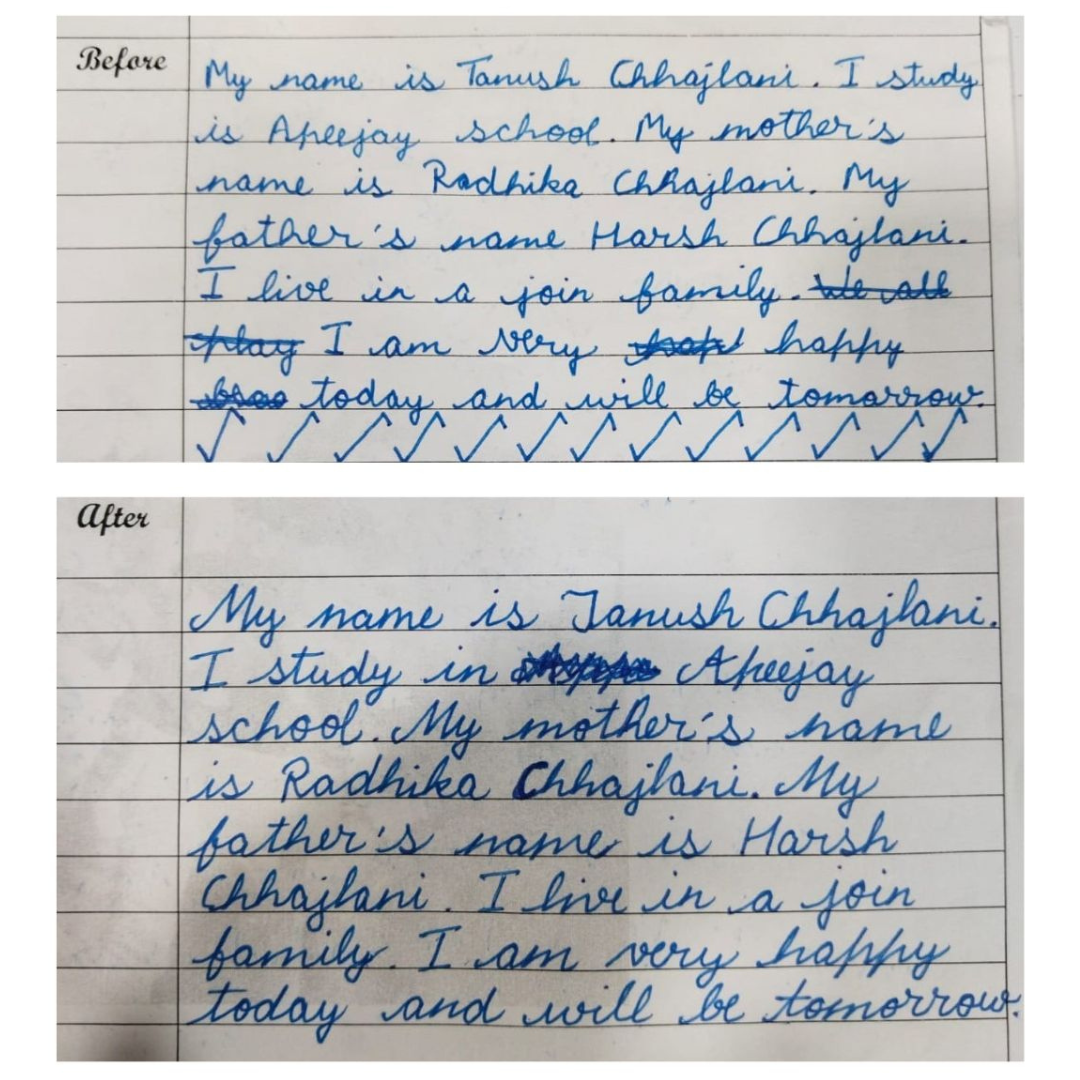 Before
My name is Tanush Chhajlani. I study
is Apeejay school. My mother's
name is Radhika Chhajlani. My
father's name Harsh Chhajlani.
I live in a join family. We all
play I am very hap happy
today and will be tomorrow.
After
My name is Tanush Chhajlani.
I study in Apeejay
school. My mother's name
is Radhika Chhajlani. My
father's name is Harsh
Chhajlani. I live in a join
family. I am very happy
today and will be tomorrow.